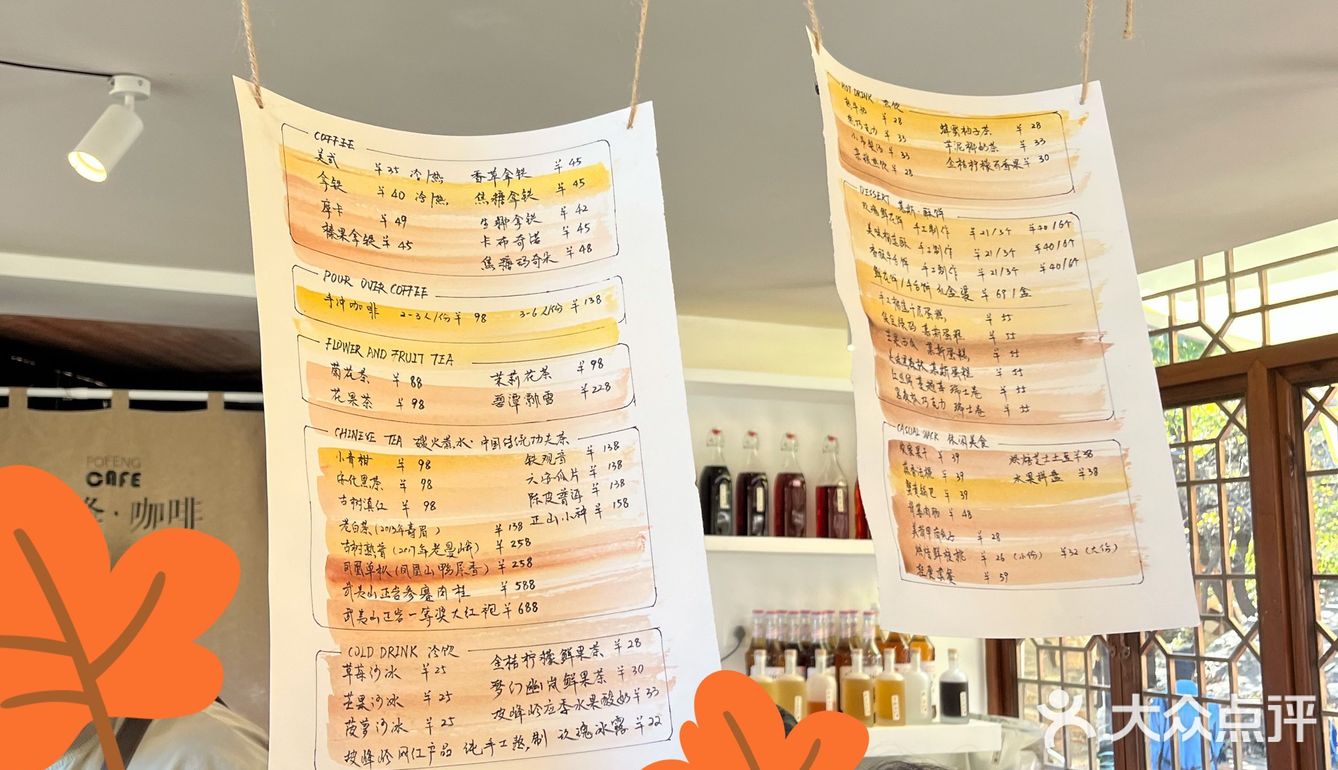 COFFEE
美式 ¥35 冷/热
拿铁 ¥40 冷/热
摩卡 ¥49
榛果拿铁 ¥45
香草拿铁 ¥45
焦糖拿铁 ¥45
生椰拿铁 ¥42
卡布奇诺 ¥45
焦糖玛奇朵 ¥48
POUR OVER COFFEE
手冲咖啡 2-3人/份 ¥98 3-6人/份 ¥138
FLOWER AND FRUIT TEA
菊花茶 ¥88
花果茶 ¥98
茉莉花茶 ¥98
碧潭飘雪 ¥228
CHINEVE TEA 碳火煮水·中国传统功夫茶
小青柑 ¥98
宋代黑茶 ¥98
古树滇红 ¥98
铁观音 ¥138
六安瓜片 ¥138
陈皮普洱 ¥138
正山小种 ¥158
老白茶(2013年寿眉) ¥138
古树熟普(2017年老曼峨) ¥258
凤凰单枞(凤凰山鸭屎香) ¥258
武夷山正岩参赛肉桂 ¥588
武夷山正岩一等奖大红袍 ¥688
COLD DRINK 冷饮
草莓沙冰 ¥25
芒果沙冰 ¥25
菠萝沙冰 ¥25
金桔柠檬鲜果茶 ¥28
梦幻幽岚鲜果茶 ¥30
坡峰岭应季水果酸奶 ¥33
坡峰岭网红产品 纯手工熬制 玫瑰冰露 ¥22
HOT DRINK 热饮
热牛奶 ¥28
热巧克力 ¥33
¥33
¥28
蜂蜜柚子茶 ¥28
芋泥椰奶茶 ¥33
金桔柠檬百香果 ¥30
DESSERT 慕斯·酥饼
玫瑰鲜花饼 手工制作 ¥21/34 ¥40/64
手工制作 ¥21/34 ¥40/64
手工制作 ¥21/34 ¥40/64
礼盒装 ¥69/盒
¥55
慕斯蛋糕 ¥55
慕斯蛋糕 ¥55
慕斯蛋糕 ¥55
瑞士卷 ¥55
巧克力 瑞士卷 ¥55
CASUAL SNACK 休闲美食
¥39
¥39
¥39
¥48
¥28
¥26(小份) ¥52(大份)
¥59
烘焙芝士土豆 ¥38
水果拼盘 ¥38
POFENG
CAFE
·咖啡
大众点评